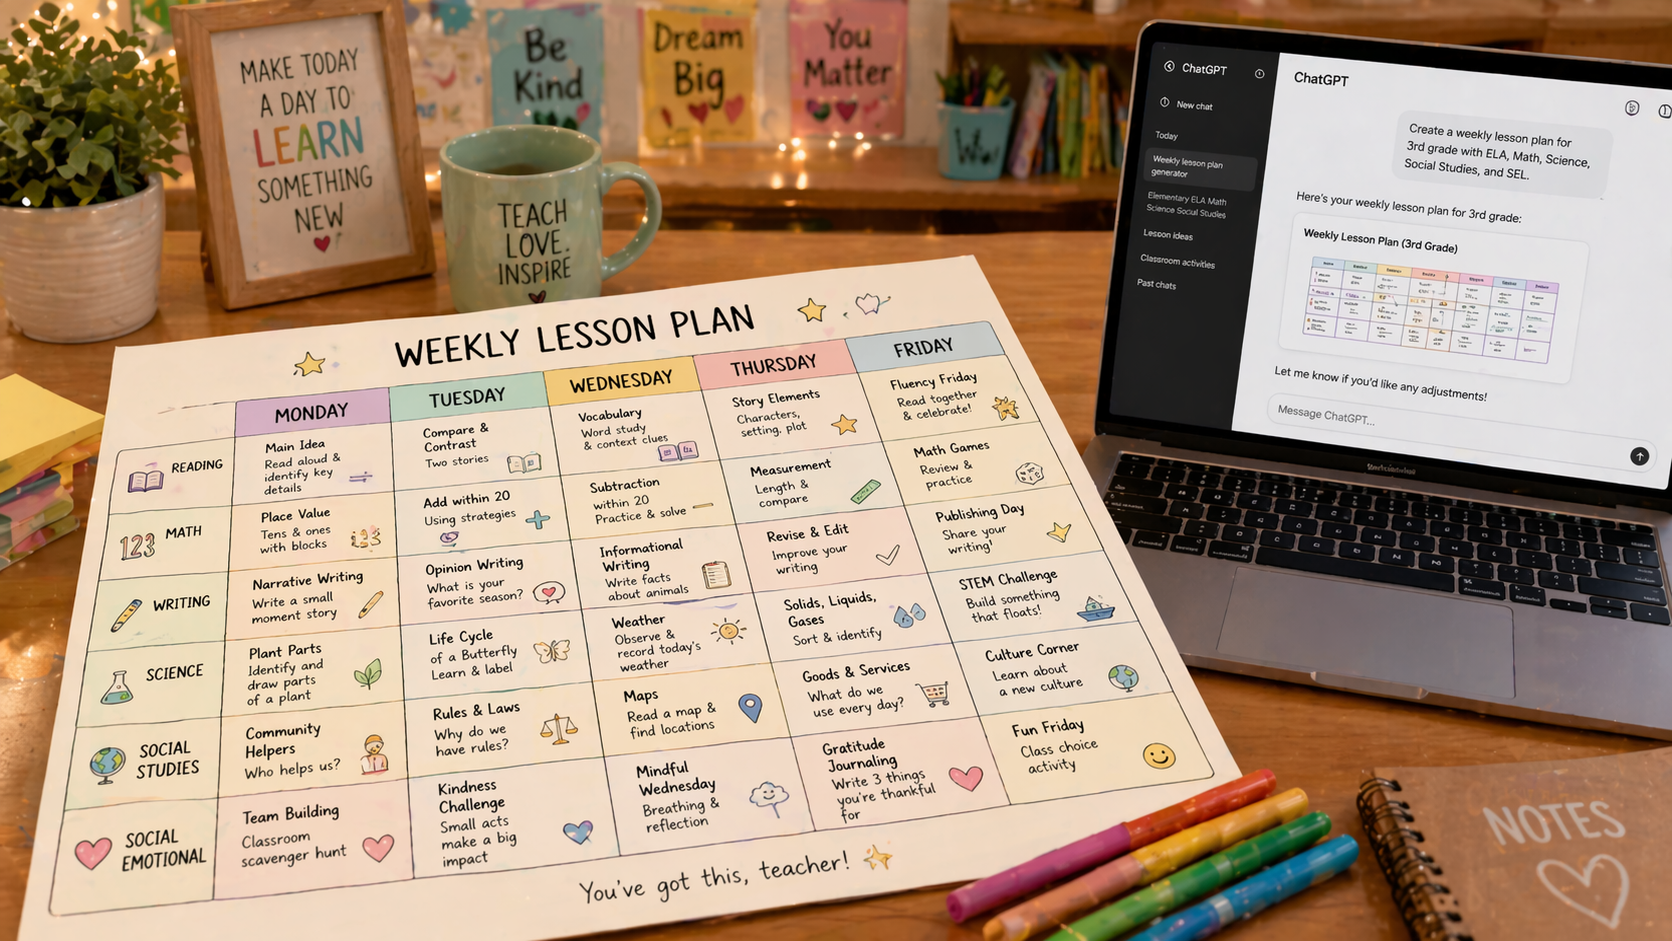 MAKE TODAY
A DAY TO
LEARN
SOMETHING
NEW
Be
Kind
Dream
Big
You
Matter
TEACH
LOVE.
INSPIRE
WEEKLY LESSON PLAN
MONDAY
TUESDAY
WEDNESDAY
THURSDAY
FRIDAY
READING
Main Idea
Read aloud &
identify key
details
Compare &
Contrast
Two stories
Vocabulary
Word study
& context clues
Story Elements
Characters,
setting, plot
Fluency Friday
Read together
& celebrate!
123
MATH
Place Value
Tens & ones
with blocks
Add within 20
Using strategies
Subtraction
within 20
Practice & solve
Measurement
Length &
compare
Math Games
Review &
practice
WRITING
Narrative Writing
Write a small
moment story
Opinion Writing
What is your
favorite season?
Informational
Writing
Write facts
about animals
Revise & Edit
Improve your
writing
Publishing Day
Share your
writing!
SCIENCE
Plant Parts
Identify and
draw parts
of a plant
Life Cycle
of a Butterfly
Learn & label
Weather
Observe &
record today's
weather
Solids, Liquids,
Gases
Sort & identify
STEM Challenge
Build something
that floats!
SOCIAL
STUDIES
Community
Helpers
Who helps us?
Rules & Laws
Why do we
have rules?
Maps
Read a map &
find locations
Goods & Services
What do we
use every day?
Culture Corner
Learn about
a new culture
SOCIAL
EMOTIONAL
Team Building
Classroom
scavenger hunt
Kindness
Challenge
Small acts
make a big
impact
Mindful
Wednesday
Breathing &
reflection
Gratitude
Journaling
Write 3 things
you're thankful
for
Fun Friday
Class choice
activity
You've got this, teacher!
ChatGPT
New chat
Today
Weekly lesson plan
generator
Elementary ELA Math
Science Social Studies
Lesson ideas
Classroom activities
Past chats
ChatGPT
Create a weekly lesson plan for
3rd grade with ELA, Math, Science,
Social Studies, and SEL.
Here's your weekly lesson plan for 3rd grade:
Weekly Lesson Plan (3rd Grade)
Let me know if you'd like any adjustments!
Message ChatGPT...
NOTES